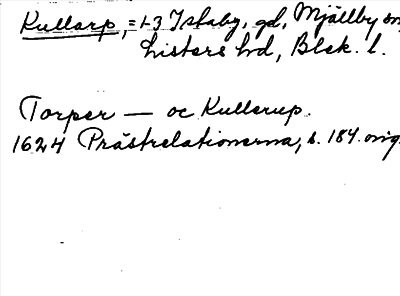 Kullarp, = 1-3 Istaby, gd, Mjällby sn,
Listers hd, Blek. l.
Torper — oc Kullerup.
1624 Prästrelationerna, s. 184. orig.